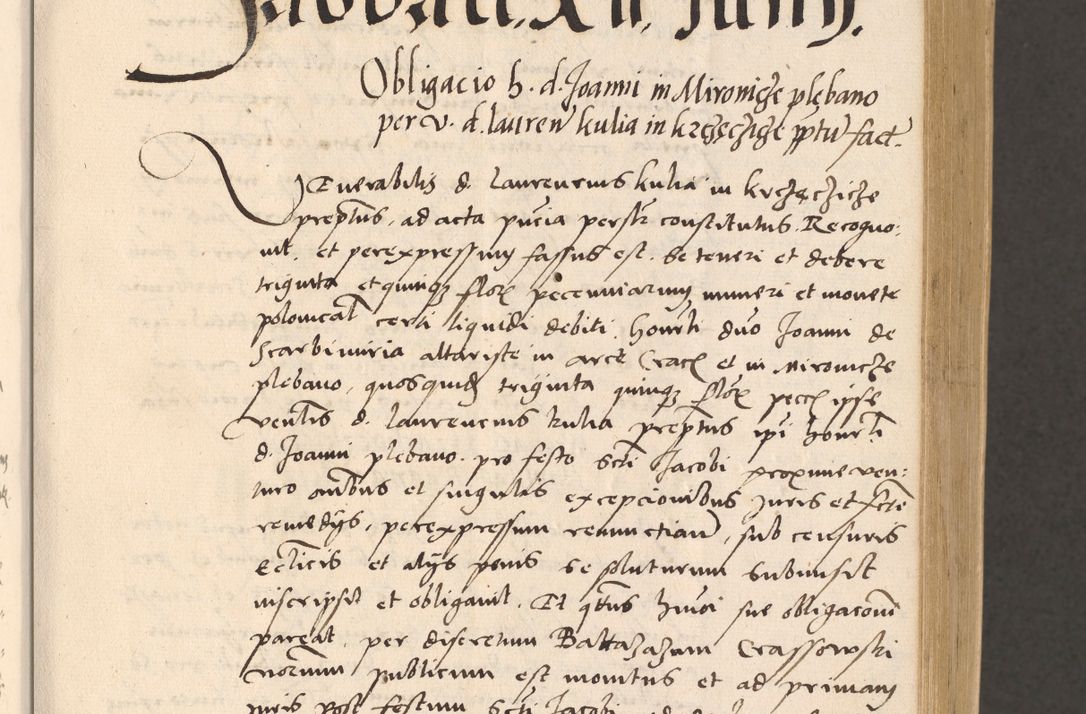 Sabbati. XII. Junij.
Obligacio h. d. Joanni in Mironicze plebano
per v. d. lauren kulia in krzęczicze pptu fact.
Venerabilis d. laurencius kulia in krzęcziche
preptus, ad acta pncia perslr constitutus. Recogno:
uit, et per expressum fassus est. se teneri et debere
triginta et quinq flor peccuniarum numeri et monete
polonicat certi liquidi debiti honrli dno Joanni de
Scarbimiria altariste in arce Crac et in Mironicze
plebano, quosquid triginta quinq flor pecc ipse
venlis d. laurencius kulia preptus ipi honrli
d. Joanni plebano. pro festo scti Jacobi proxime ven:
turo omibus et singulis excepcionibus Juris et fcti
remedijs, per expressum renunctians, sub censuris
Ecclicis et alijs penis se soluturum submisit
inscripsit et obligauit. Et qtus huoi sue obligaconi
pareat, per discretum Baltazazum Crassowski
norium publicum est monitus et ad primam
juris post festum scti Jacobi